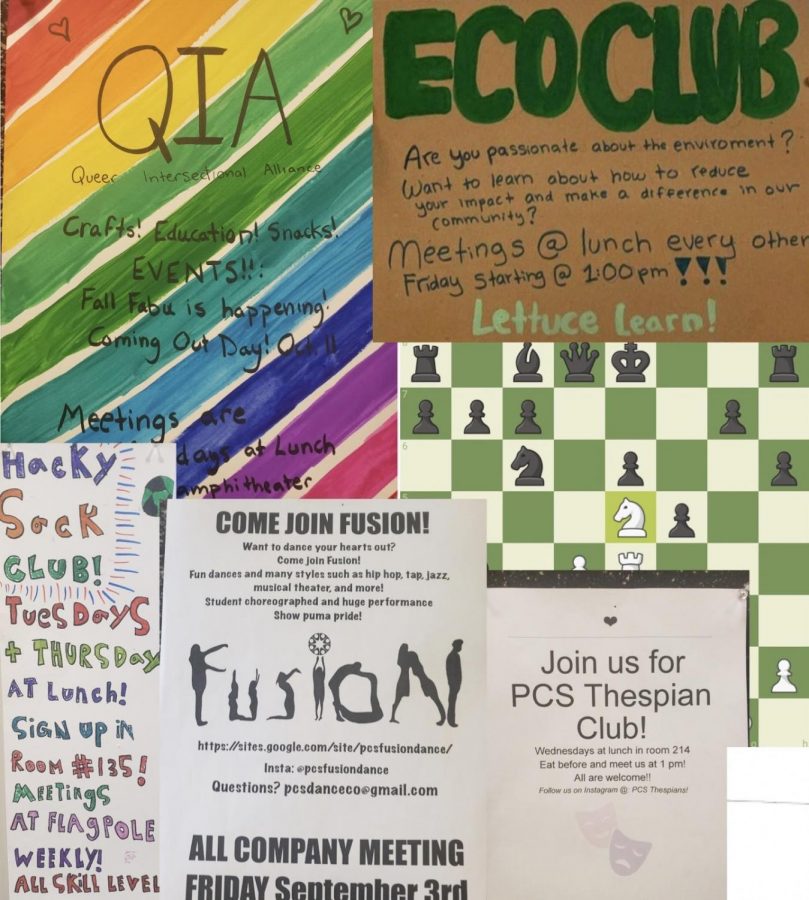 QIA
Queer Intersectional Alliance
Crafts! Education! Snacks!
EVENTS!!!
Fall Fabu is happening!
Coming Out Day! Oct. 11
Meetings are
days at Lunch
amphitheater
ECOCLUB
Are you passionate about the enviroment?
Want to learn about how to reduce
your impact and make a difference in our
community?
Meetings @ lunch every other
Friday starting @ 1:00pm !!!
Lettuce Learn!
7
6
h
Hacky
Sack
CLUB!
TuesDayS
+ THURSDay
AT Lunch!
SiGN UP iN
Room #135!
MEETiNGS
AT FLAGPOLE
WEEKLY!
ALL SKiLL LEVEL
COME JOIN FUSION!
Want to dance your hearts out?
Come join Fusion!
Fun dances and many styles such as hip hop, tap, jazz,
musical theater, and more!
Student choreographed and huge performance
Show puma pride!
FUSION
https://sites.google.com/site/pcsfusiondance/
Insta: @pcsfusiondance
Questions? pcsdanceco@gmail.com
ALL COMPANY MEETING
FRIDAY September 3rd
Join us for
PCS Thespian
Club!
Wednesdays at lunch in room 214
Eat before and meet us at 1 pm!
All are welcome!!
Follow us on Instagram @ PCS Thespians!